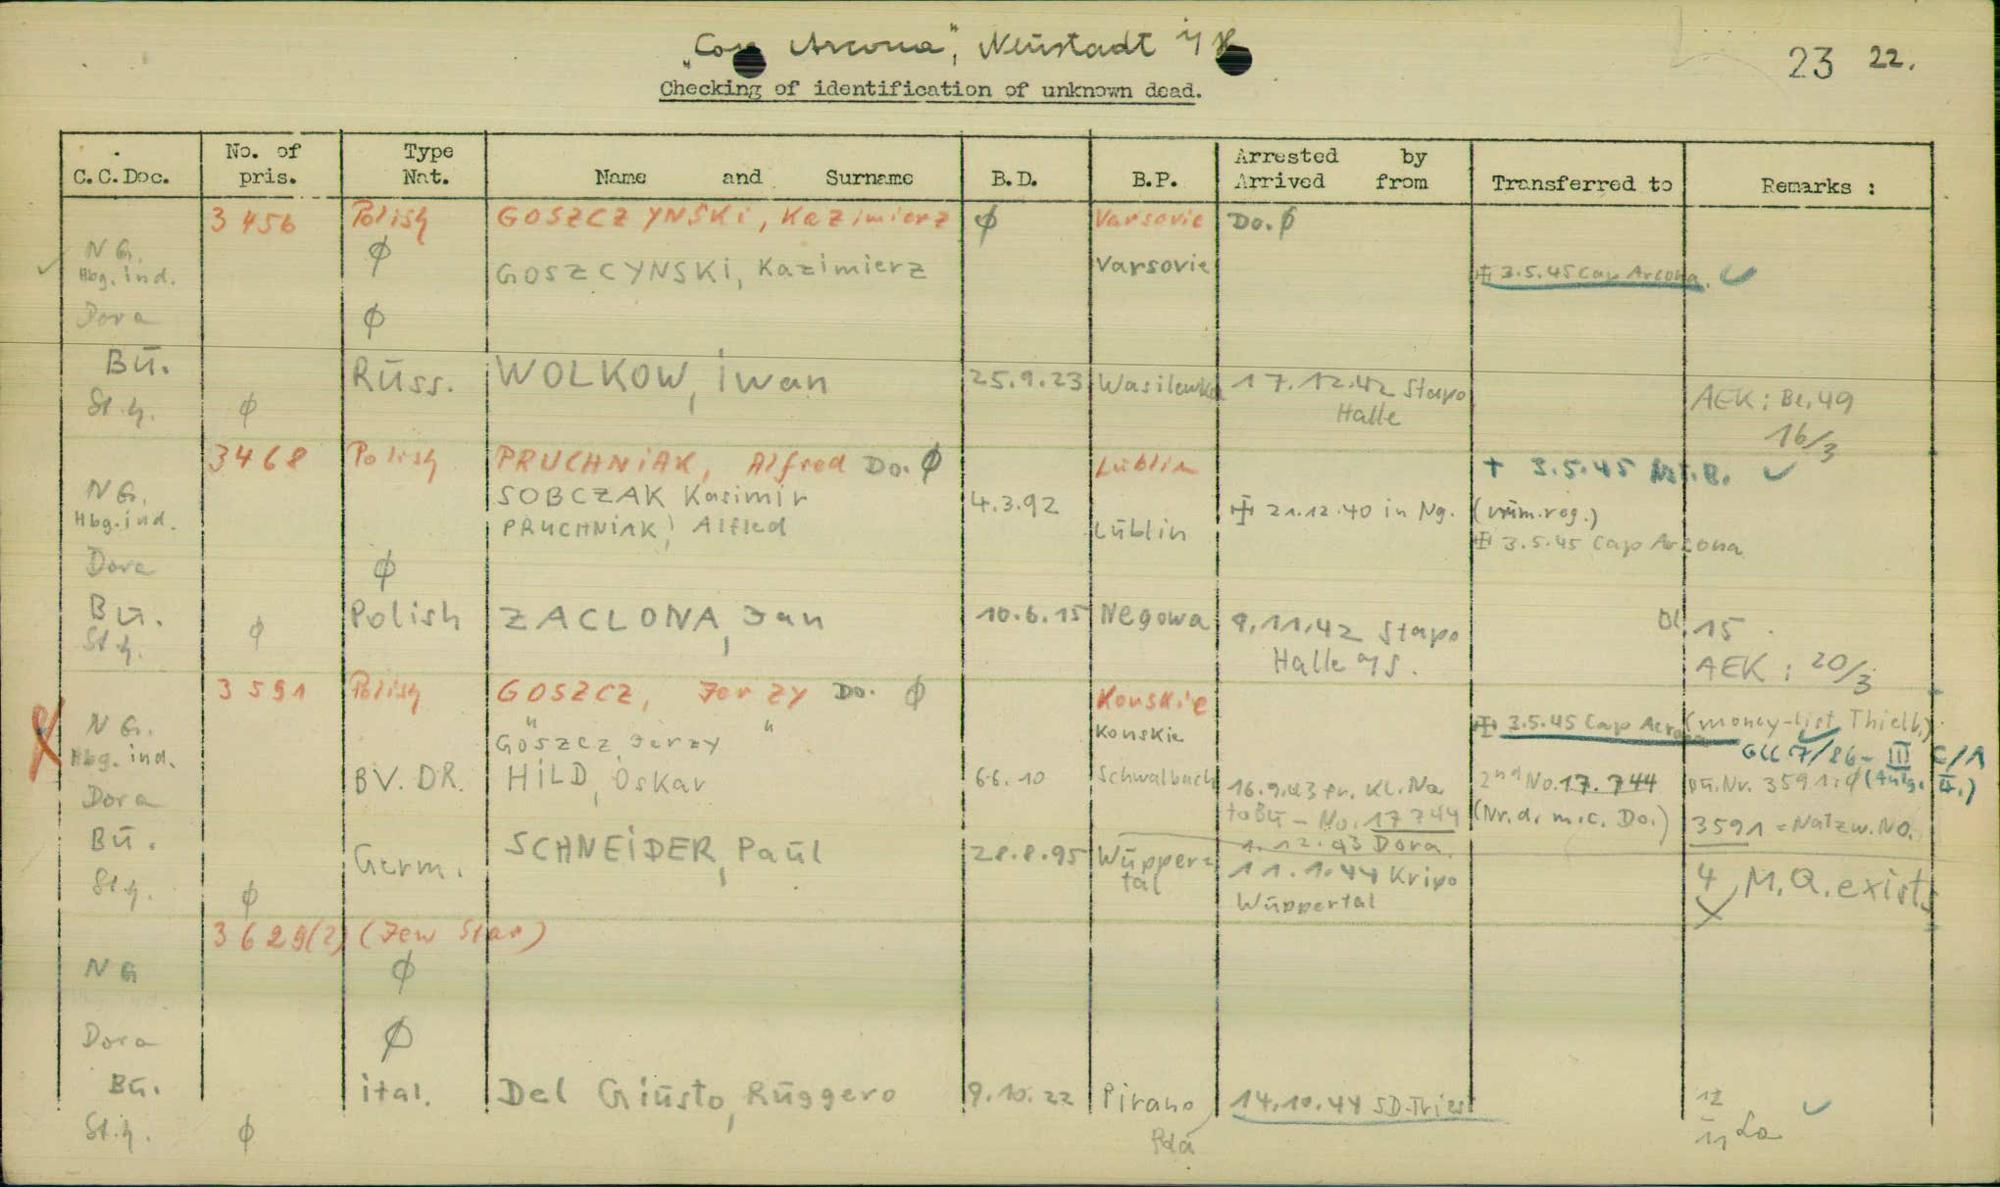 "Cap Arcona", Neustadt i/H
23 22.
Checking of identification of unknown dead.
C.C.Doc. No. of pris. Type Nat. Name and Surname B.D. B.P. Arrested by Arrived from Transferred to Remarks :
3 456 Polish GOSZCZYNSKi, Kazimierz ϕ Varsovie Do. ϕ
NG. ϕ
Hbg. ind. GOSZCYNSKi, Kazimierz Varsovie 3.5.45 Cap Arcona.
Dora ϕ
Bū. Rūss. WOLKOW, iwan 25.9.23 Wasilewka 17.12.42 Stapo Halle AEK: Bl. 49 16/3
St.h. ϕ
3468 Polish PRUCHNiAK, Alfred Do. ϕ Lūblin + 3.5.45
NG. SOBCZAK Kasimir 4.3.92 21.12.40 in Ng. (num.reg.)
Hbg. ind. PRUCHNiAK, Alfred Lūblin 3.5.45 Cap Arcona
Dora ϕ
Bū. Polish ZACLONA, Jan 10.6.15 Negowa 9.11.42 Stapo Halle a/S. Bl. 15
St.h. ϕ AEK: 20/3
3 591 Polish GOSZCZ, Jerzy Do. ϕ Konskie
NG. " " 3.5.45 Cap Arcona (money-list Thielb.)
Hbg. ind. Goszcz, Jerzy Konskie GCC 7/86 - III C/A
Dora BV. DR. HiLD, Oskar 6.6.10 Schwalbach 16.9.43 fr. KL. Na to Bū - No. 17744 2nd No. 17.744 Bū. Nr. 3591: ϕ
(Nr. d. m. c. Do.) 3591 = Natzw. No.
1.12.43 Dora
Bū. Germ. SCHNEiDER, Paūl 28.8.95 Wūpper=tal 11.1.44 Kripo Wūppertal 4 M.Q. exists
St.h. ϕ
3 629(?) (Jew Star)
NG ϕ
Dora ϕ
Bū. ital. Del Giūsto, Rūggero 9.10.22 Pirano 14.10.44 SD-Triest
St.h. ϕ